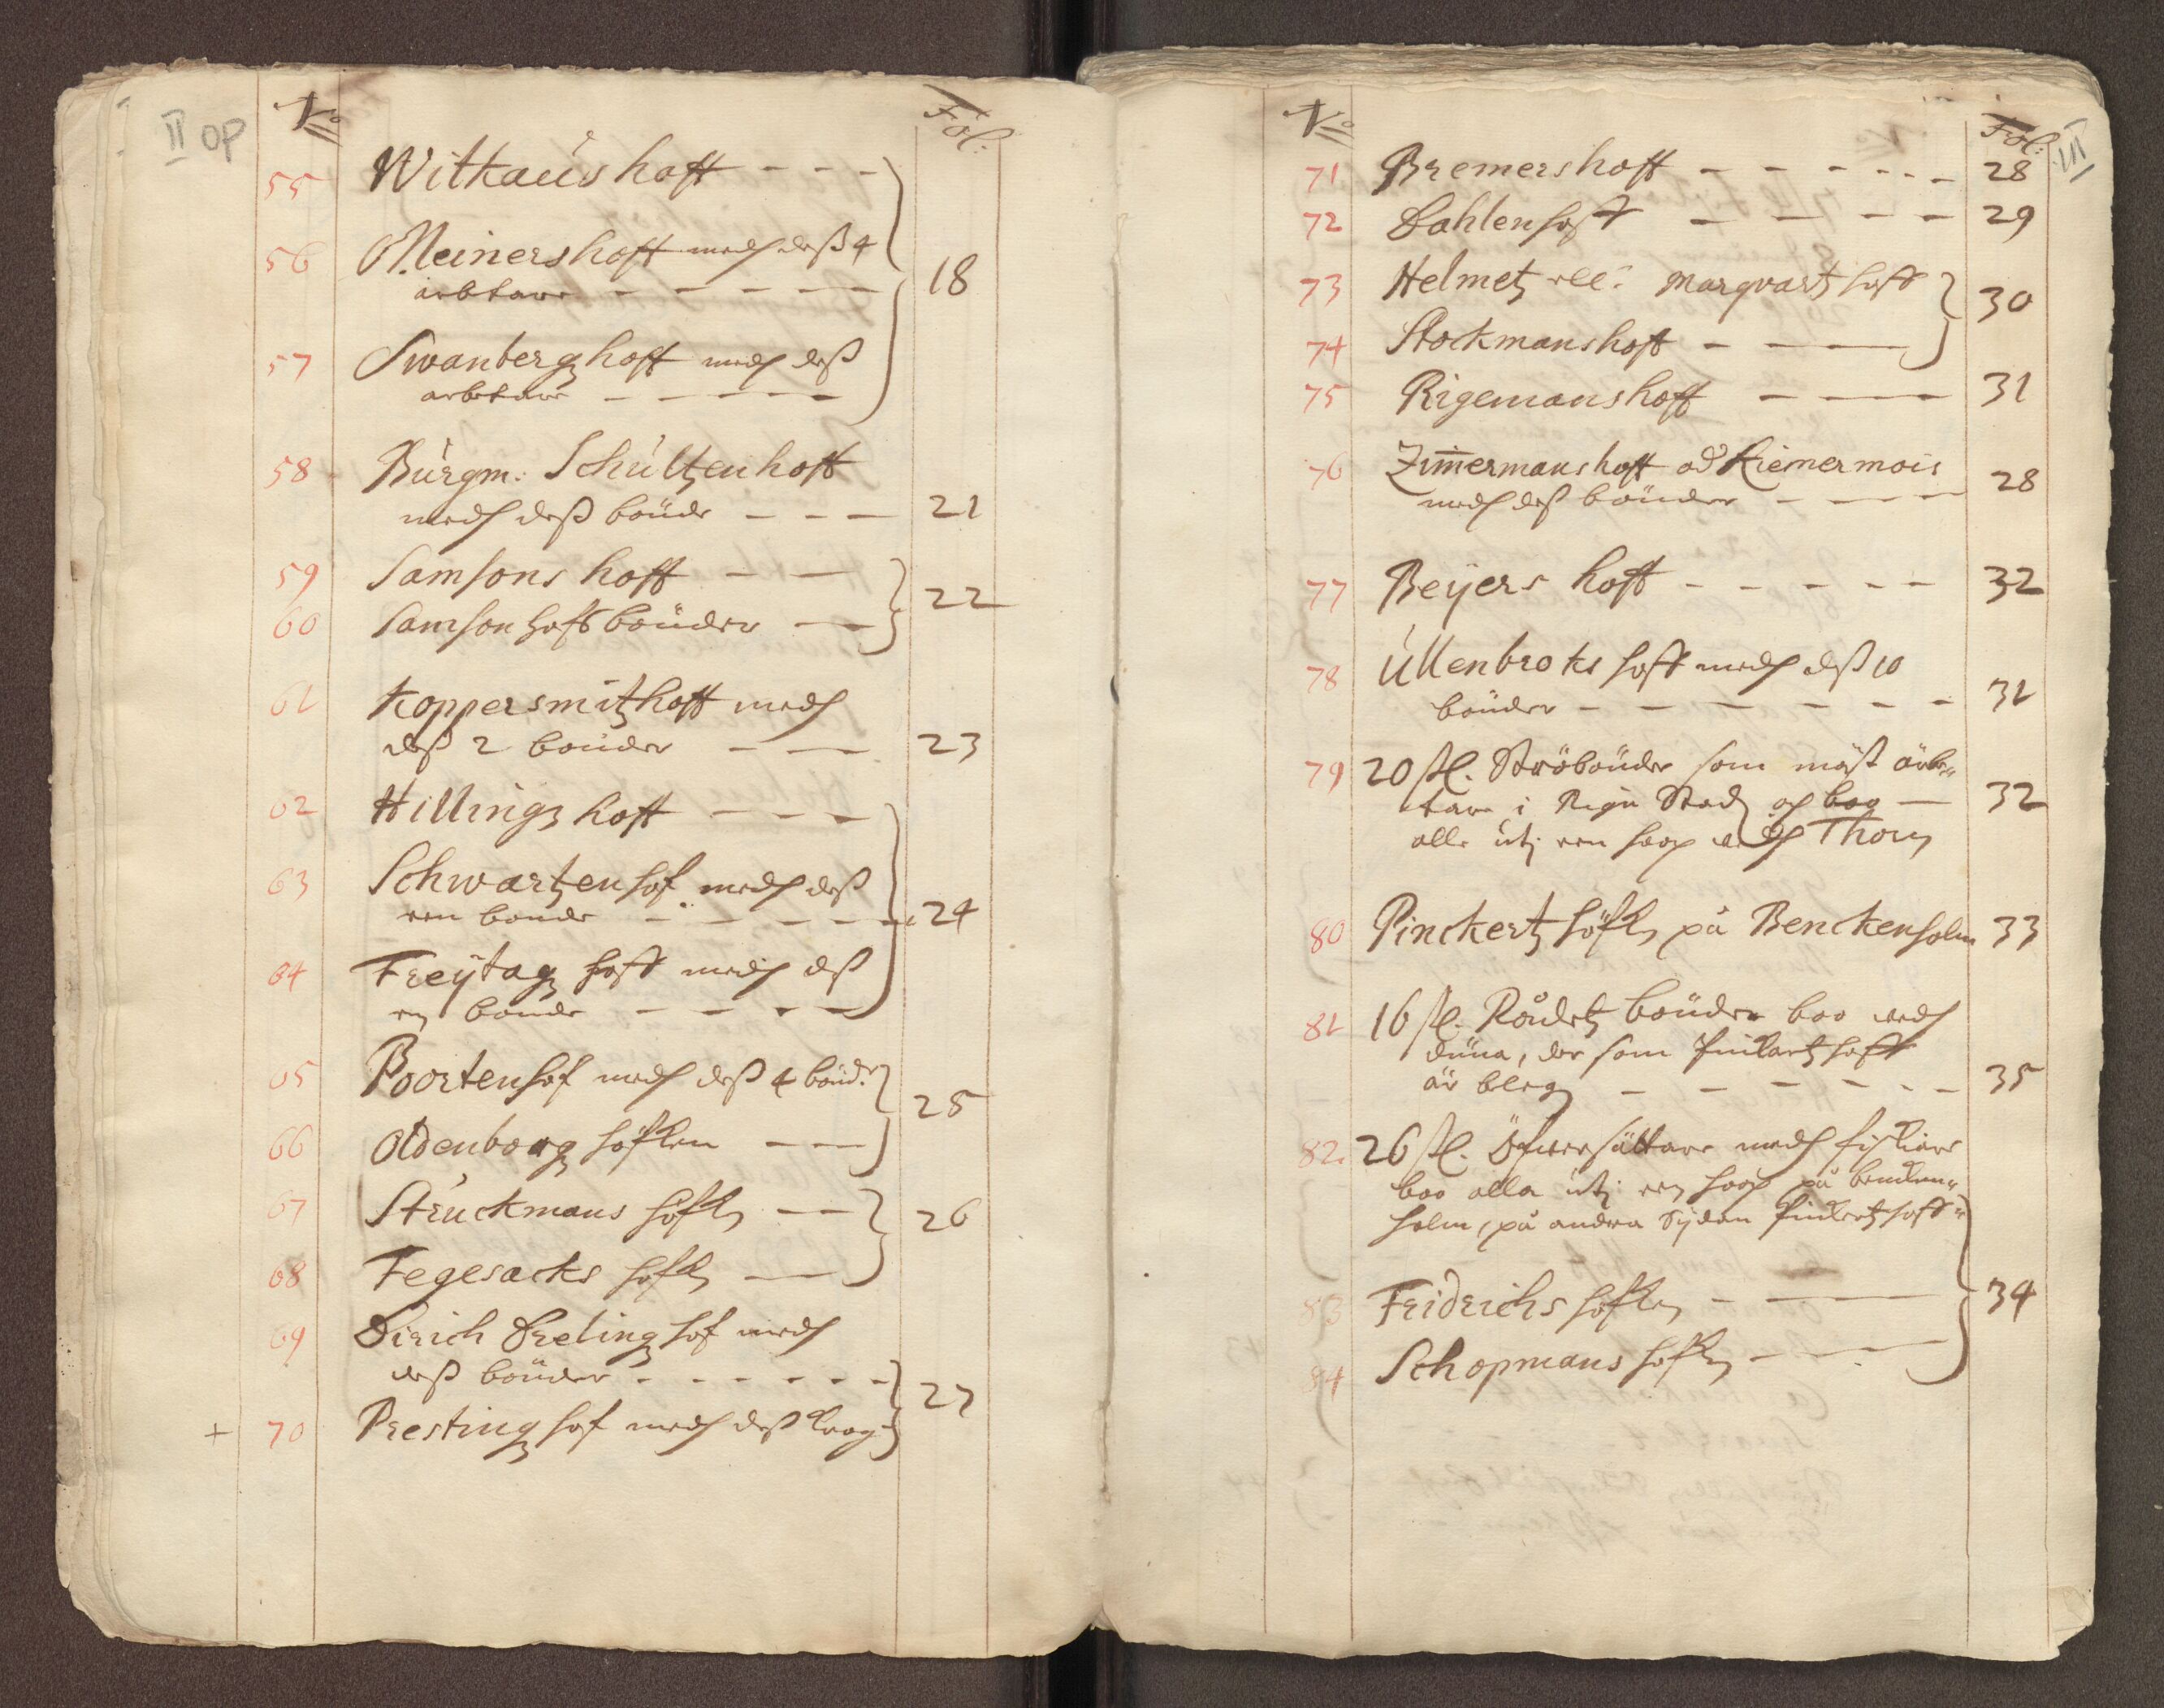 II op
No
Fol:
55 Witkaus hoft - - -
56 Meinershoft medh deß 4
arbtare - - - - - 18
57 Swanbergz hoft medh deß
arbetare - - - - -
58 Bürgm: Schültzenhoft
medh deß bönde - - - 21
59 Samsons hoft - -
60 Samson hofs bönder - - 22
61 Koppersmitz hoft medh
deß 2 bönder - - 23
62 Hillingz hoft - - -
63 Schwartzen hof medh deß
een bonde - - - - - 24
64 Freÿtagz hoft medh dß
en bonde - - - -
65 Poortenhof medh deß 4 bönd:r
25
66 Oldenborgz höfken - -
67 Strückmans höfk - - 26
68 Fegesacks höfk -
69 Dirich Drelingz hof medh
deß bönder - - - - - - 27
+ 70 Prestingz hof medh deß krog -
III
No
Fol:
71 Bremershoft - - - - - - 28
72 Dahlenhoft - - - - 29
73 Helmetz ell: Marqvartz hoft
30
74 Stockmanshoft - - -
75 Rigemanshoft - - - 31
76 Zimermanshoft od Riemermois
medh deß bönder - - - - 28
77 Beÿers hoft - - - - - 32
78 Üllenbroks hoft medh deß 10
bönder - - - - - - - 31
79 20 st. Ströbönder som mäst arbe„
tare i Riga Stadz och boo - 32
alle uti een hoop widh Thorn
80 Pinckertz höfk på Benckenholm 33
81 16 st. Rådetz bönder boo widh
düna, der som Pinkartz hoft
är beleg - - - - - - 35
82. 26 st. Öfwersättare medh fiskiare
boo alla uti een hoop på bencken„
holm, på andra Sÿdan Pinkertz hoft„
83 Fridrichs höfken - - 34
84 Schopmans höfk - - -